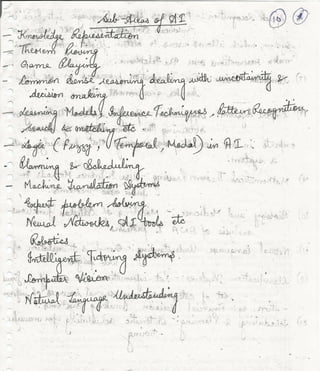 Sub-Areas of AI
10
- Knowledge Representation
- Theorem Proving
- Game Playing
- Common Sense reasoning dealing with uncertainity &
decision making
- Learning Models, Inference Techniques, Pattern Recognition,
search & matching etc
- Logic (Fuzzy, Temporal, Modal) in AI
- Planning & Scheduling
- Machine Translation Systems
Expert problem solving
Neural Networks, AI tools etc
Robotics
Intelligent Tutoring systems
Computer Vision
Natural Language Understanding